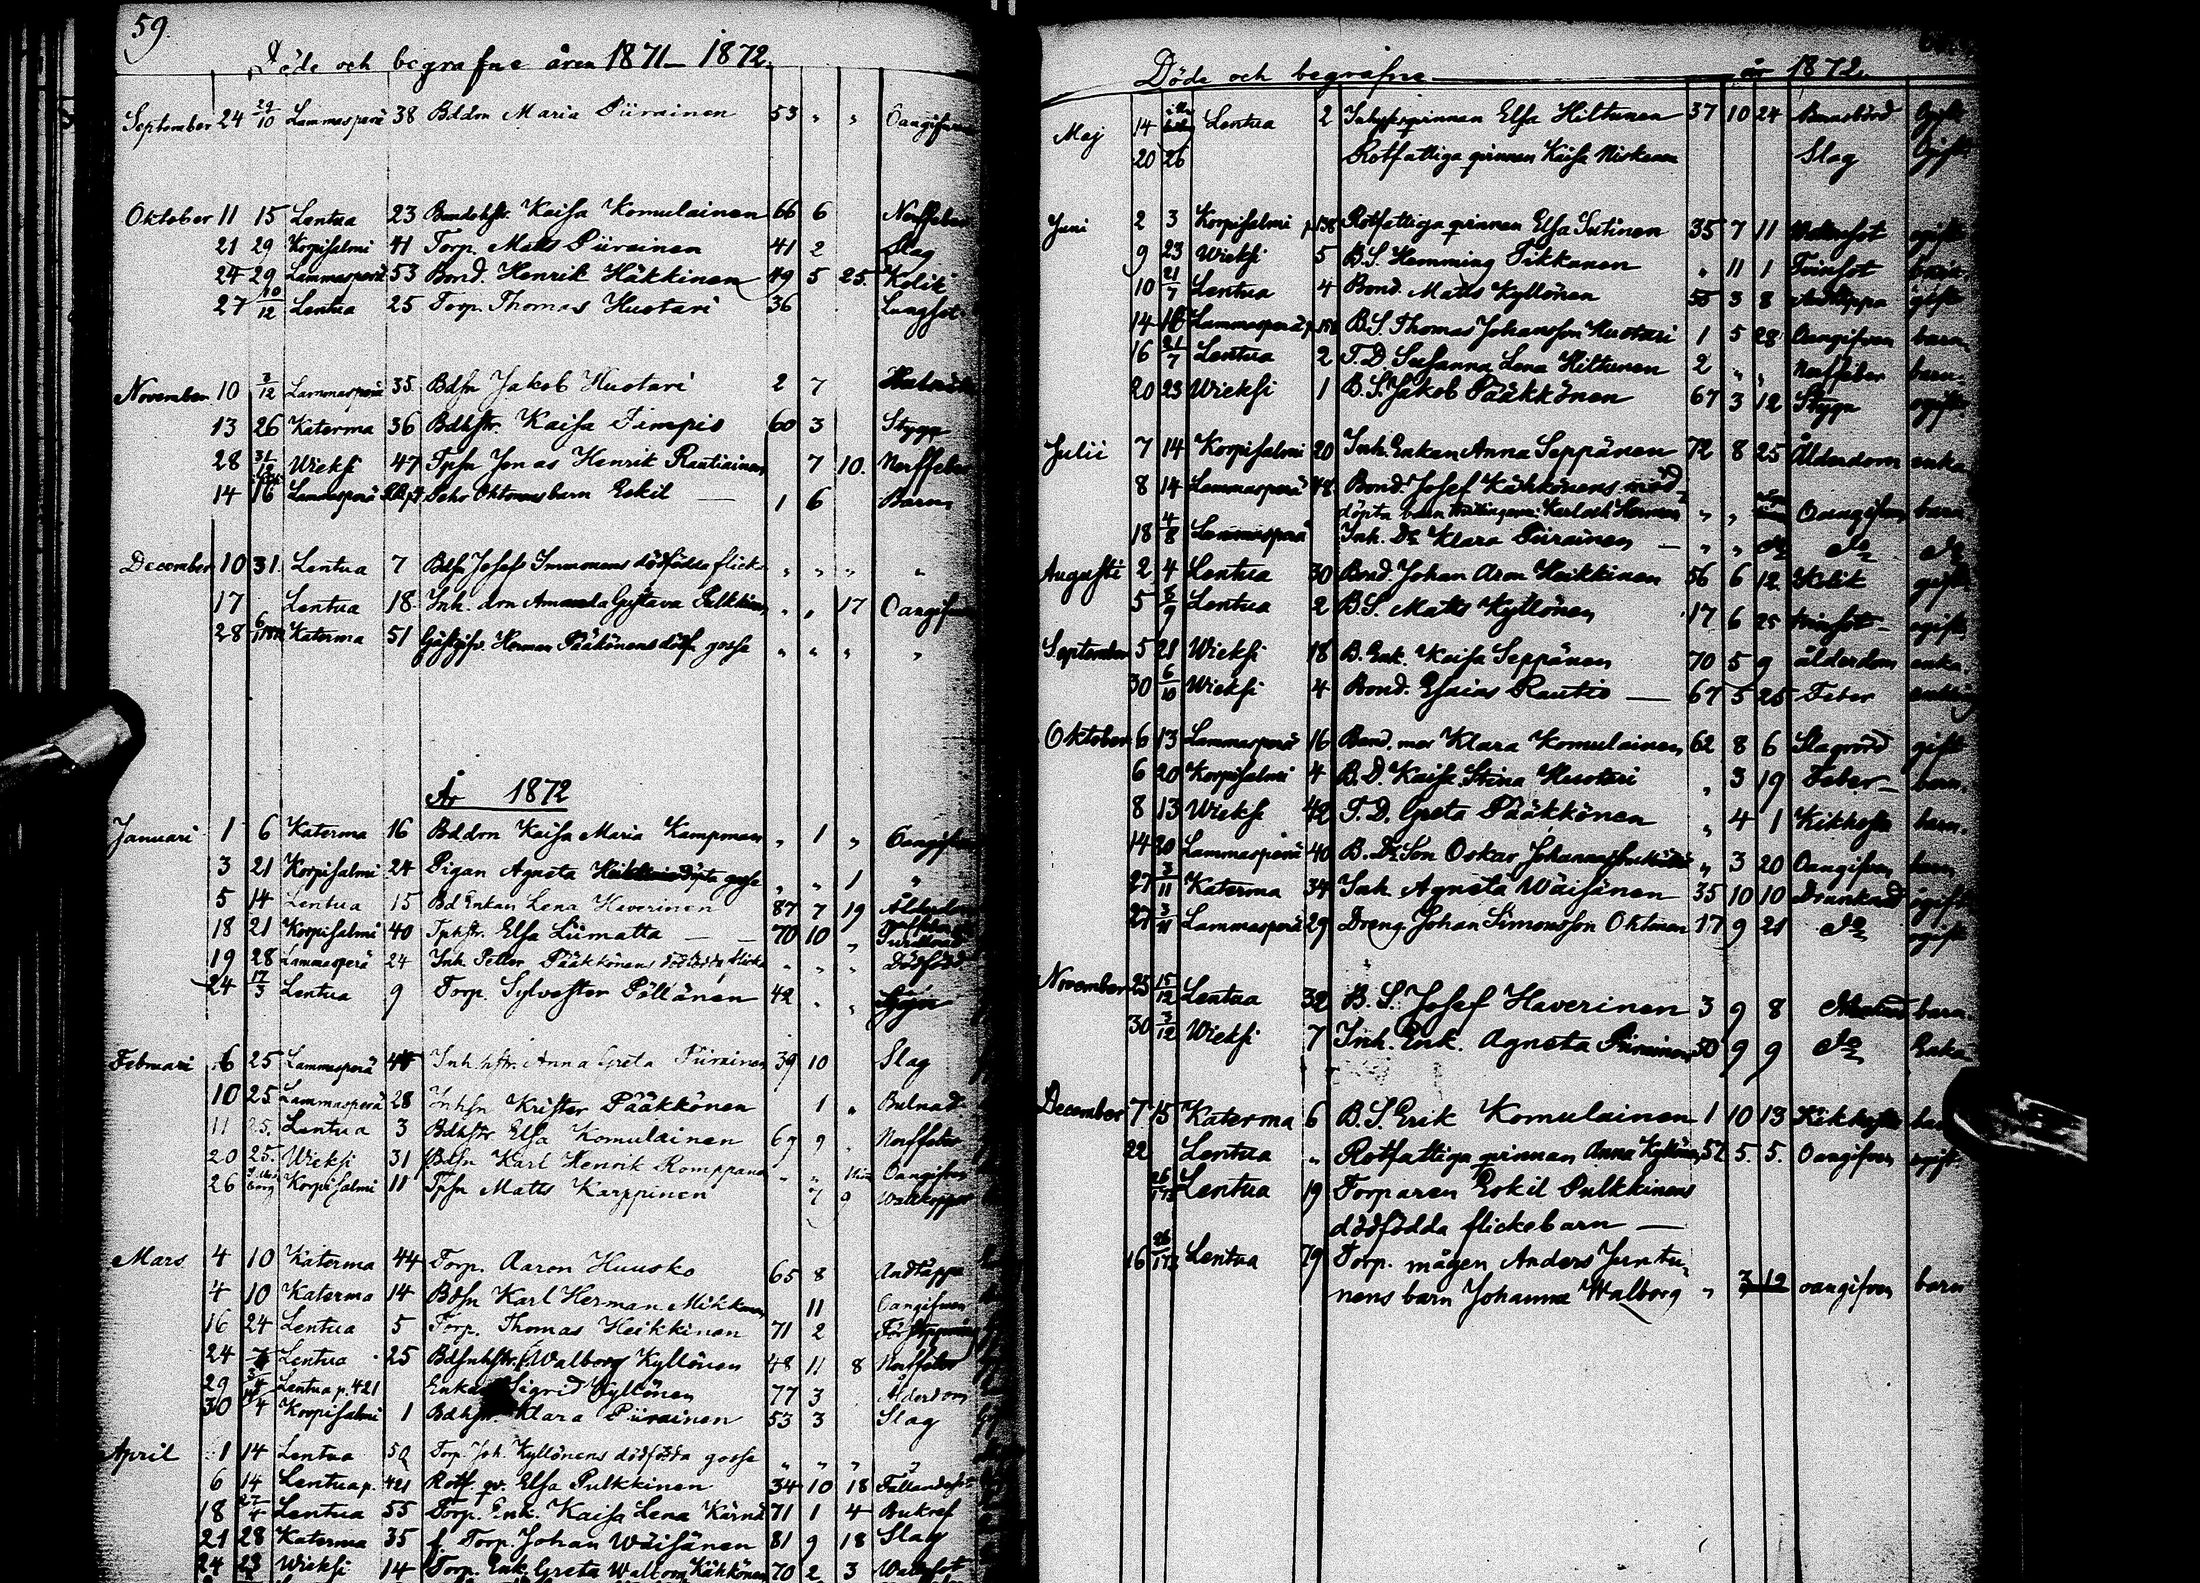 59.
Döde och begrafne åren 1871-1872.
September 24 29/10 Lammasperä 38 Bddon Maria Piirainen 53 " " Oangifven
Oktober 11 15 Lentua 23 Bondehstr. Kaisa Komulainen 66 6 Nerffeber
21 29 Korpisalmi 41 Torp. Matts Piirainen 41 2 Slag
24 29 Lammasperä 53 Bond. Henrik Häkkinen 49 5 25. Kolik
27 10/12 Lentua 25 Torp. Thomas Huotari 36 Lungsot
November 10 3/12 Lammasperä 35 Bdsn Jakob Huotari 2 7
13 26 Katerma 36 Bdhstr. Kaisa Timpis 60 3 Stygg
28 31/12 Wieksi 47 Tpsn Jonas Henrik Rautiainen 7 10. Nerffeber
14 16 Lammasperä barn Eskil — 1 6 Barns
December 10 31 Lentua 7 Bds Josef Immonens dödfödda flick " " " "
17 Lentua 18 Inh. don Amanda Gustava Pulkkinen " " 17 Oangifven
28 6/1 1872 Katerma 51 Gästgifv. Herman Pääkönens dödf. gosse " " " "
År 1872
Januari 1 6 Katerma 16 Bddon Kaisa Maria Kamponen " 1 " Oangifven
3 21 Korpisalmi 24 Pigan Agneta döpta gosse " " 1 "
5 14 Lentua 15 Bd Enkan Lena Haverinen 87 7 19
18 21 Korpisalmi 40 Tphstr. Elsa Liimatta — — 70 10 "
19 28 Lammasperä 24 Inh. Petter Pääkkönens dödfödda flicka " " " Dödfödd
24 17/3 Lentua 9 Torp. Sylvester Pöllänen 42 " "
Februari 6 25 Lammasperä Inh.hstr. Anna Greta Piirainen 39 10 Slag
10 25 Lammasperä 28 Inhsn Krister Pääkkönen 1 " Bulnad
11 25. Lentua 3 Bdhstr Elsa Komulainen 69 9 Nerffeber
20 25. Wieksi 31 Bdsn Karl Henrik Romppanen " " Oangifven
26 Korpisalmi 11 Tpsn Matts Karppinen 7 9 Wattkoppor
Mars 4 10 Katerma 44 Torp. Aaron Huusko 65 8 Andtäppa
4 10 Katerma 14 Bdsn Karl Herman Mikkonen 11 Oangifven
16 24 Lentua 5 Torp. Thomas Heikkinen 71 2 Förstoppning
24 Lentua 25 Bdsnhstr. Walborg Kyllönen 48 11 8 Nerffeber
29 Lentua p. 421 Enkan Sigrid Kyllönen 77 3 Ålderdom
30 Korpisalmi 1 Bdhstr. Klara Piirainen 53 3 Slag
April 1 14 Lentua 50 Torp. Joh. Kyllönens dödfödda gosse " " " "
6 14 Lentua p. 421 Rotf. qv. Elsa Pulkkinen 34 10 18 Fallandesot
18 27/4 Lentua 55 Torp. Enk. Kaisa Lena Kärnä 71 1 4 Bukref
21 28 Katerma 35 f. Torp. Johan Wäisänen 81 9 18 Slag
24 28 Wieksi 14 Torp. Enk. Greta Walborg Käkkönen 70 2 3 Wattusot
Döde och begrafne år 1872.
Maj 14 Lentua 2 Inhysesqvinnan Elsa Hiltunen 37 10 24 Barnsbörd Ogift
20 26 Rotfattiga qvinnan Kaisa Niskanen Slag Ogift
Juni 2 3 Korpisalmi p.138 Rotfattiga qvinnan Elsa Tutinen 35 7 11 Wattusot ogift
9 23 Wieksi 5 B.S. Hemming Pikkanen " 11 1 Tvinsot barn
10 21/7 Lentua 4 Bond. Matts Kyllönen 55 3 8 Andtäppa gift
14 16 Lammasperä B.S. Thomas Johansson Huotari 1 5 28 Oangifven barn
16 21/7 Lentua 2 T.D. Susanna Lena Hiltunen 2 " " Nerffeber barn.
20 23 Wieksi 1 B.S. Jakob Pääkkönen 67 3 12 Stygn ogift
Julii 7 14 Korpisalmi 20 Inh. Enkan Anna Seppänen 72 8 25 Ålderdom enka
8 14 Lammasperä 48 Bond. Josef Kähkönens nöd-
döpta barn Karl och Herman " " Oangifven barn
18 4/8 Lammasperä Inh. Dr Klara Piirainen — " " do do do
Augusti 2 4 Lentua 30 Bond. Johan Aron Heikkinen 56 6 12 Kolik gift
5 8/9 Lentua 2 B.S. Matts Kyllönen 17 6 25 tvinsot ogift
September 5 21 Wieksi 18 B. Enk. Kaisa Seppänen 70 5 9 ålderdom enka
30 6/10 Wieksi 4 Bond. Esaias Rautio — 67 5 25 Feber enkling
Oktober 6 13 Lammasperä 16 Bond. mor Klara Komulainen 62 8 6 Slagrörd gift
6 20 Korpisalmi 4 B.D. Kaisa Stina Huotari " 3 19 Feber barn.
8 13 Wieksi 42 T.D. Greta Pääkkönen " 4 1 Kikhosta barn.
14 20 Lammasperä 40 B. Dr. Son Oskar Johannes " 3 20 Oangifven barn
27 3/11 Katerma 34 Inh. Agneta Wäisänen 35 10 10 Drunknad ogift
27 3/11 Lammasperä 29 Dreng Johan Simonsson Oktonen 17 9 21 do ogift
November 25 15/12 Lentua 32 B.S. Josef Haverinen 3 9 8 barn.
30 3/12 Wieksi 7 Inh. Enk. Agneta Piirainen 50 9 9 do Enka
December 7 15 Katerma 6 B.S. Erik Komulainen 1 10 13 Kikhosta barn
22 Lentua " Rotfattiga qvinnan Anna Kyllönen 52 5. 5. Oangifven ogift
Lentua 19 Torparen Eskil Pulkkinens
dödfödda flickebarn —
16 Lentua 79 Torp. mågen Anders Juntu-
nens barn Johanna Walborg " 3 12 oangifven barn